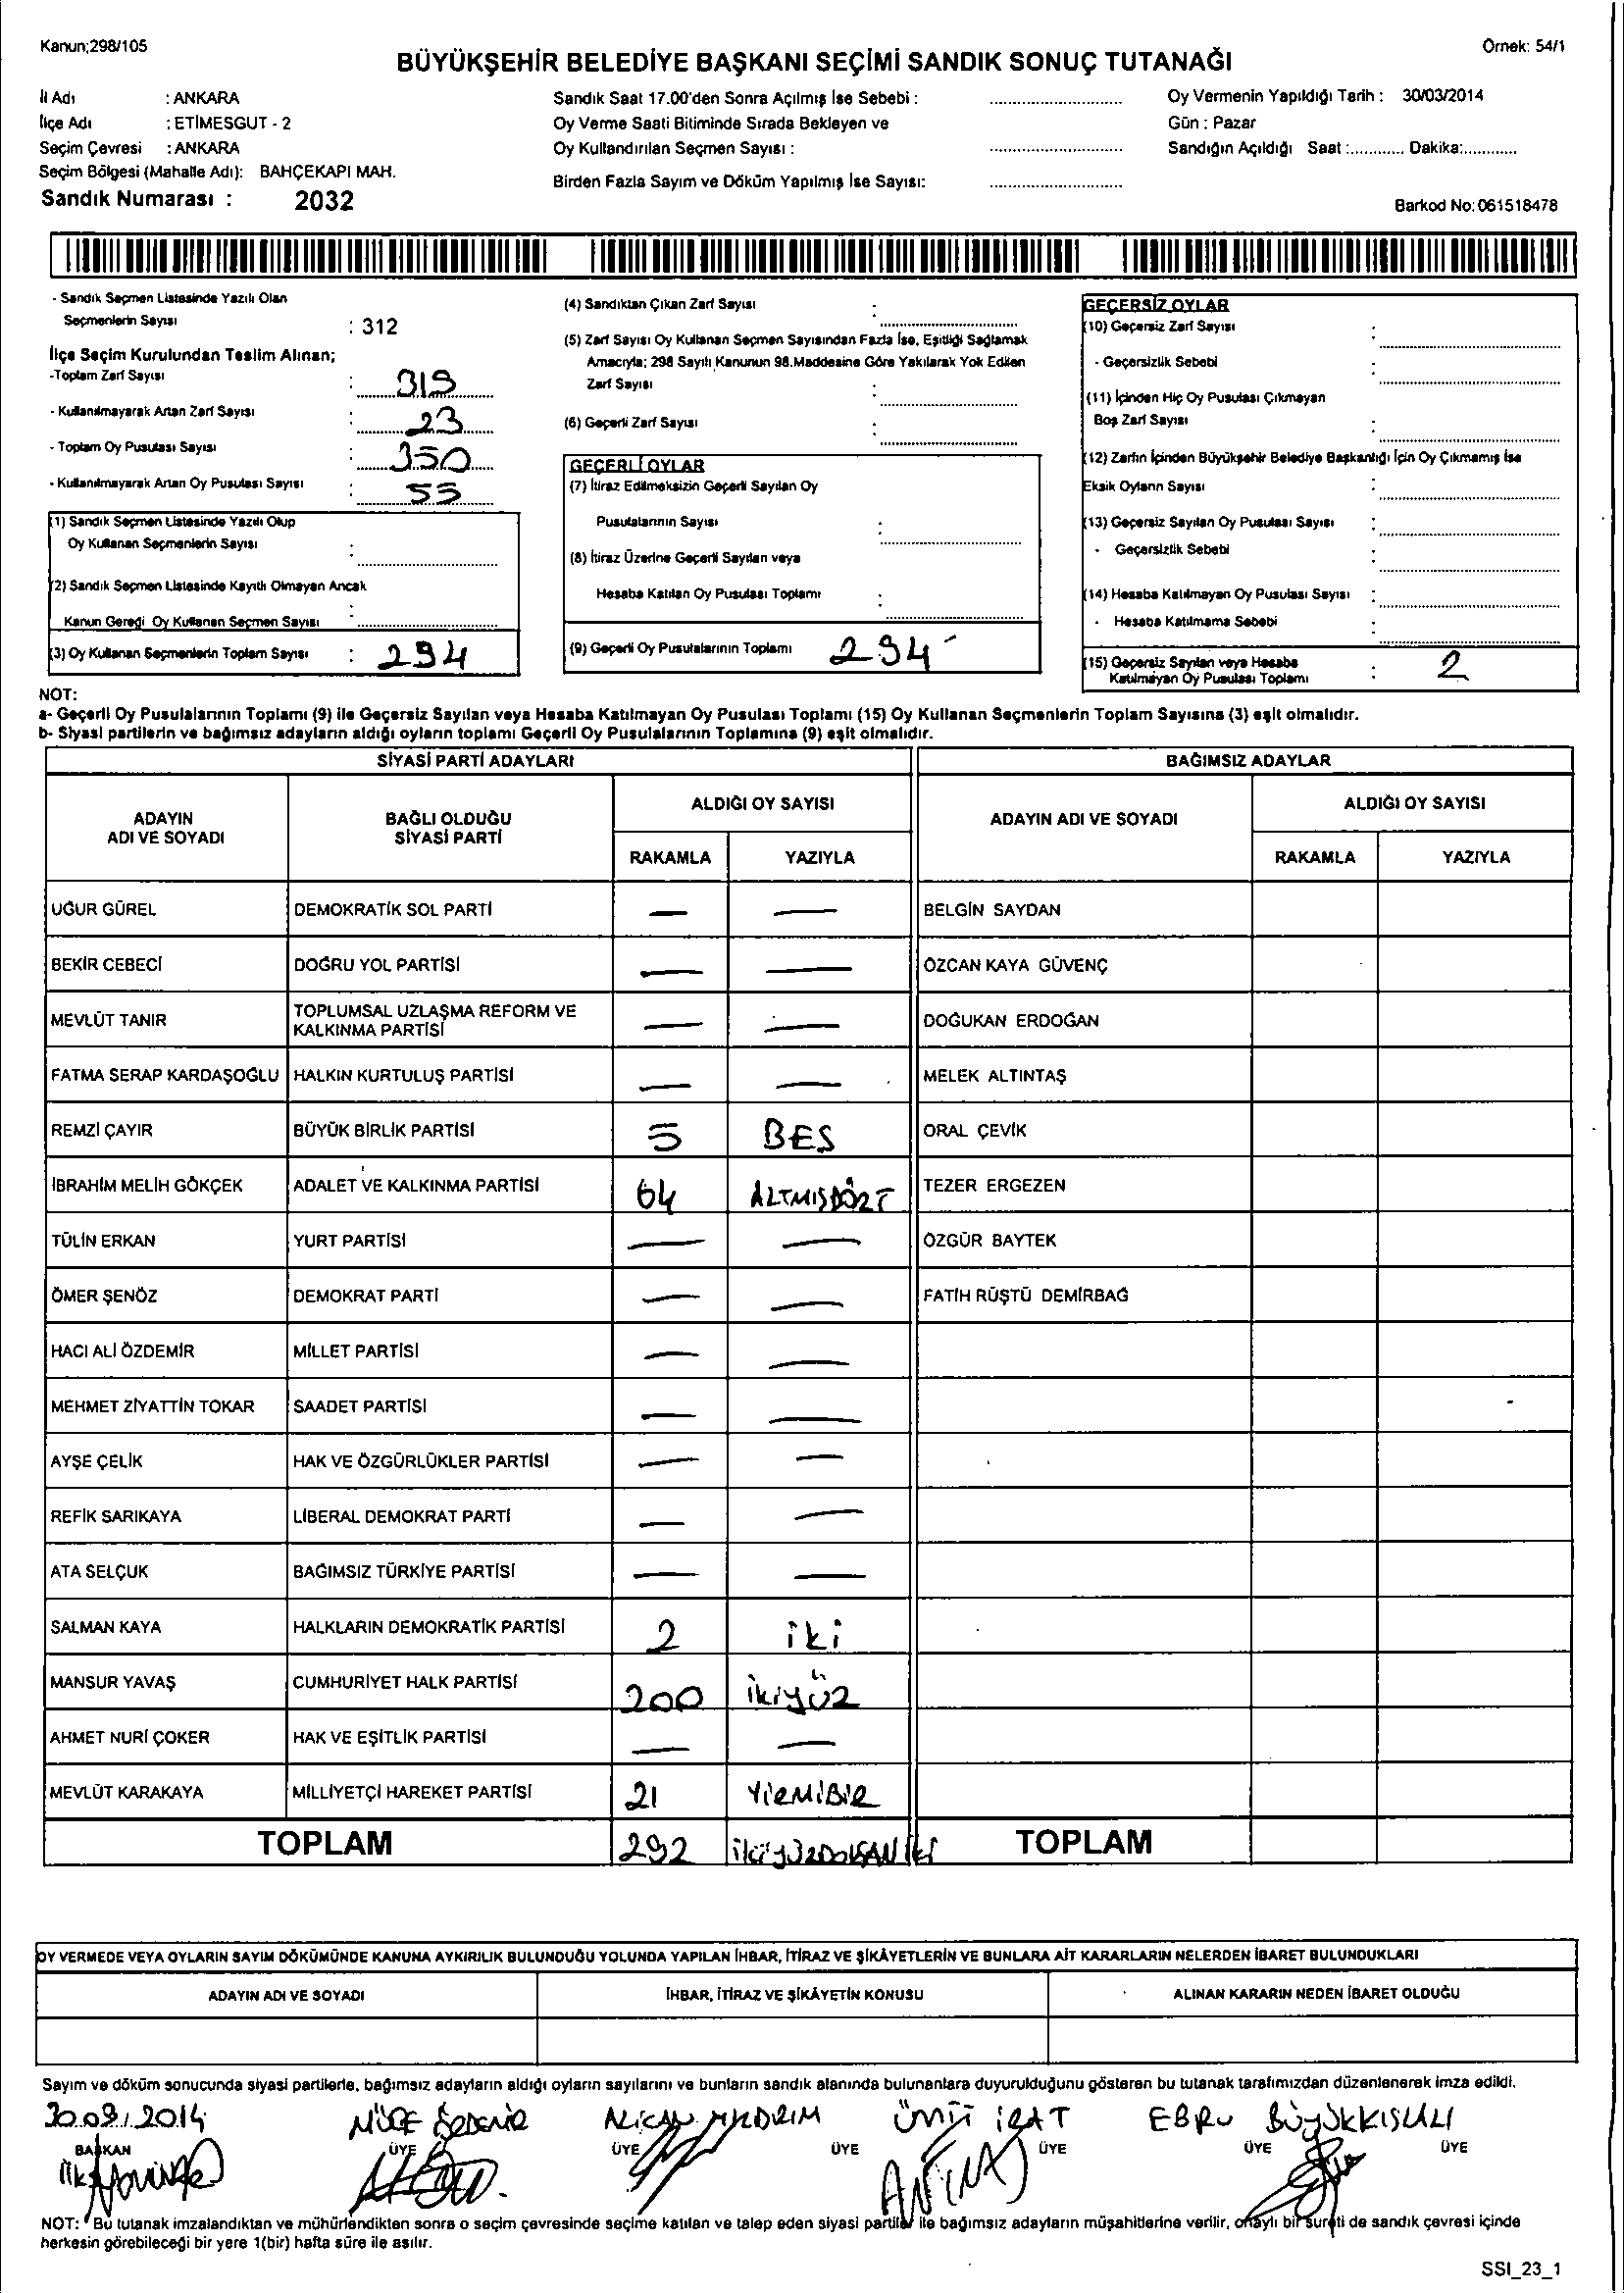 Kanun;298/105
Örnek: 54/1
BÜYÜKŞEHİR BELEDİYE BAŞKANI SEÇİMİ SANDIK SONUÇ TUTANAĞI
İl Adı : ANKARA
İlçe Adı : ETİMESGUT - 2
Seçim Çevresi : ANKARA
Seçim Bölgesi (Mahalle Adı): BAHÇEKAPI MAH.
Sandık Numarası : 2032
Sandık Saat 17.00'den Sonra Açılmış İse Sebebi :
Oy Verme Saati Bitiminde Sırada Bekleyen ve
Oy Kullandırılan Seçmen Sayısı :
Birden Fazla Sayım ve Döküm Yapılmış İse Sayısı:
Oy Vermenin Yapıldığı Tarih : 30/03/2014
Gün : Pazar
Sandığın Açıldığı Saat :............ Dakika:............
Barkod No: 061518478
- Sandık Seçmen Listesinde Yazılı Olan
Seçmenlerin Sayısı : 312
İlçe Seçim Kurulundan Teslim Alınan;
-Toplam Zarf Sayısı : 319
- Kullanılmayarak Artan Zarf Sayısı : 23
- Toplam Oy Pusulası Sayısı : 350
- Kullanılmayarak Artan Oy Pusulası Sayısı : 55
(1) Sandık Seçmen Listesinde Yazılı Olup
Oy Kullanan Seçmenlerin Sayısı :
(2) Sandık Seçmen Listesinde Kayıtlı Olmayan Ancak
Kanun Gereği Oy Kullanan Seçmen Sayısı :
(3) Oy Kullanan Seçmenlerin Toplam Sayısı : 294
(4) Sandıktan Çıkan Zarf Sayısı :
(5) Zarf Sayısı Oy Kullanan Seçmen Sayısından Fazla İse, Eşitliği Sağlamak
Amacıyla; 298 Sayılı Kanunun 98.Maddesine Göre Yakılarak Yok Edilen
Zarf Sayısı :
(6) Geçerli Zarf Sayısı :
GEÇERLİ OYLAR
(7) İtiraz Edilmeksizin Geçerli Sayılan Oy
Pusulalarının Sayısı :
(8) İtiraz Üzerine Geçerli Sayılan veya
Hesaba Katılan Oy Pusulası Toplamı :
(9) Geçerli Oy Pusulalarının Toplamı 294
GEÇERSİZ OYLAR
(10) Geçersiz Zarf Sayısı :
- Geçersizlik Sebebi :
(11) İçinden Hiç Oy Pusulası Çıkmayan
Boş Zarf Sayısı :
(12) Zarfın İçinden Büyükşehir Belediye Başkanlığı İçin Oy Çıkmamış İse
Eksik Oyların Sayısı :
(13) Geçersiz Sayılan Oy Pusulası Sayısı :
- Geçersizlik Sebebi :
(14) Hesaba Katılmayan Oy Pusulası Sayısı :
- Hesaba Katılmama Sebebi :
(15) Geçersiz Sayılan veya Hesaba
Katılmayan Oy Pusulası Toplamı : 2
NOT:
a- Geçerli Oy Pusulalarının Toplamı (9) ile Geçersiz Sayılan veya Hesaba Katılmayan Oy Pusulası Toplamı (15) Oy Kullanan Seçmenlerin Toplam Sayısına (3) eşit olmalıdır.
b- Siyasi partilerin ve bağımsız adayların aldığı oyların toplamı Geçerli Oy Pusulalarının Toplamına (9) eşit olmalıdır.
SİYASİ PARTİ ADAYLARI BAĞIMSIZ ADAYLAR
ADAYIN ADI VE SOYADI BAĞLI OLDUĞU SİYASİ PARTİ ALDIĞI OY SAYISI ADAYIN ADI VE SOYADI ALDIĞI OY SAYISI
RAKAMLA YAZIYLA RAKAMLA YAZIYLA
UĞUR GÜREL DEMOKRATİK SOL PARTİ — — BELGİN SAYDAN
BEKİR CEBECİ DOĞRU YOL PARTİSİ — — ÖZCAN KAYA GÜVENÇ
MEVLÜT TANIR TOPLUMSAL UZLAŞMA REFORM VE KALKINMA PARTİSİ — — DOĞUKAN ERDOĞAN
FATMA SERAP KARDAŞOĞLU HALKIN KURTULUŞ PARTİSİ — — MELEK ALTINTAŞ
REMZİ ÇAYIR BÜYÜK BİRLİK PARTİSİ 5 BEŞ ORAL ÇEVİK
İBRAHİM MELİH GÖKÇEK ADALET VE KALKINMA PARTİSİ 64 ALTMIŞDÖRT TEZER ERGEZEN
TÜLİN ERKAN YURT PARTİSİ — — ÖZGÜR BAYTEK
ÖMER ŞENÖZ DEMOKRAT PARTİ — — FATİH RÜŞTÜ DEMİRBAĞ
HACI ALİ ÖZDEMİR MİLLET PARTİSİ — —
MEHMET ZİYATTİN TOKAR SAADET PARTİSİ — —
AYŞE ÇELİK HAK VE ÖZGÜRLÜKLER PARTİSİ — —
REFİK SARIKAYA LİBERAL DEMOKRAT PARTİ — —
ATA SELÇUK BAĞIMSIZ TÜRKİYE PARTİSİ — —
SALMAN KAYA HALKLARIN DEMOKRATİK PARTİSİ 2 iki
MANSUR YAVAŞ CUMHURİYET HALK PARTİSİ 200 ikiyüz
AHMET NURİ ÇOKER HAK VE EŞİTLİK PARTİSİ — —
MEVLÜT KARAKAYA MİLLİYETÇİ HAREKET PARTİSİ 21 YİRMİBİR
TOPLAM 292 ikiyüzDOKSANİKİ TOPLAM
OY VERMEDE VEYA OYLARIN SAYIM DÖKÜMÜNDE KANUNA AYKIRILIK BULUNDUĞU YOLUNDA YAPILAN İHBAR, İTİRAZ VE ŞİKÂYETLERİN VE BUNLARA AİT KARARLARIN NELERDEN İBARET BULUNDUKLARI
ADAYIN ADI VE SOYADI İHBAR, İTİRAZ VE ŞİKÂYETİN KONUSU ALINAN KARARIN NEDEN İBARET OLDUĞU
Sayım ve döküm sonucunda siyasi partilerle, bağımsız adayların aldığı oyların sayılarını ve bunların sandık alanında bulunanlara duyurulduğunu gösteren bu tutanak tarafımızdan düzenlenerek imza edildi.
30.03.2014 ALİCAN YILDIRIM ÜMİT IRAT EBRU BÜYÜKKIŞLALI
BAŞKAN ÜYE ÜYE ÜYE ÜYE ÜYE ÜYE
NOT: Bu tutanak imzalandıktan ve mühürlendikten sonra o seçim çevresinde seçime katılan ve talep eden siyasi partiler ile bağımsız adayların müşahitlerine verilir, onaylı bir sureti de sandık çevresi içinde
herkesin görebileceği bir yere 1(bir) hafta süre ile asılır.
SSI_23_1